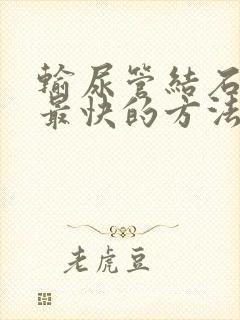 輸尿管結石
最快的方法
老虎豆